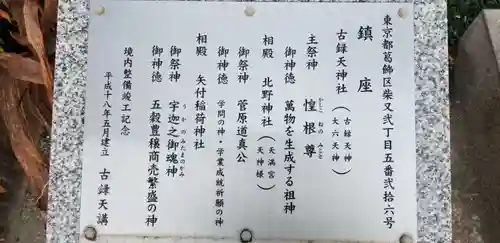 東京都葛飾区柴又弐丁目五番弐拾六号
鎮座
古録天神社(古録天神 大六天神)
主祭神 惶根尊 かしこねのみこと
御神徳 萬物を生成する祖神
相殿 北野神社(天満宮 天神様)
御祭神 菅原道真公
御神徳 学問の神・学業成就祈願の神
相殿 矢付稲荷神社
御祭神 宇迦之御魂神 うかのみたまのかみ
御神徳 五穀豊穣商売繁盛の神
境内整備竣工記念
平成十八年五月建立 古録天講